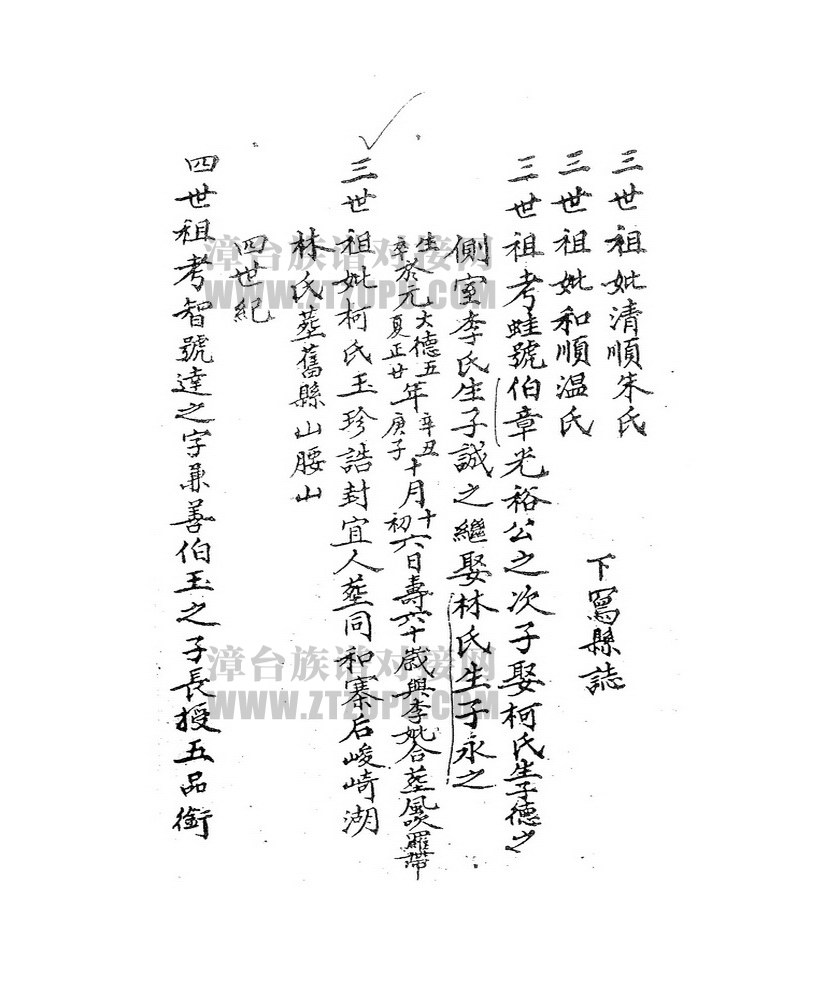 三世祖妣清順朱氏
三世祖妣和順温氏
下寫縣誌
三世祖考蛙號伯章光裕公之次子娶柯氏生子德之
側室李氏生子誠之繼娶林氏生子永之
生於元大德五年辛丑十月十六日壽六十歲與李妣合塟風吹羅帶
卒於元夏正廿年庚子十月初六日
三世祖妣柯氏玉珍誥封宜人塟同和寨后峻崎湖
林氏塟舊縣山腰山
四世紀
四世祖考智號達之字兼善伯玉之子長授五品銜
漳台族谱对接网
WWW.ZTZUPU.COM
漳台族谱对接网
WWW.ZTZUPU.COM